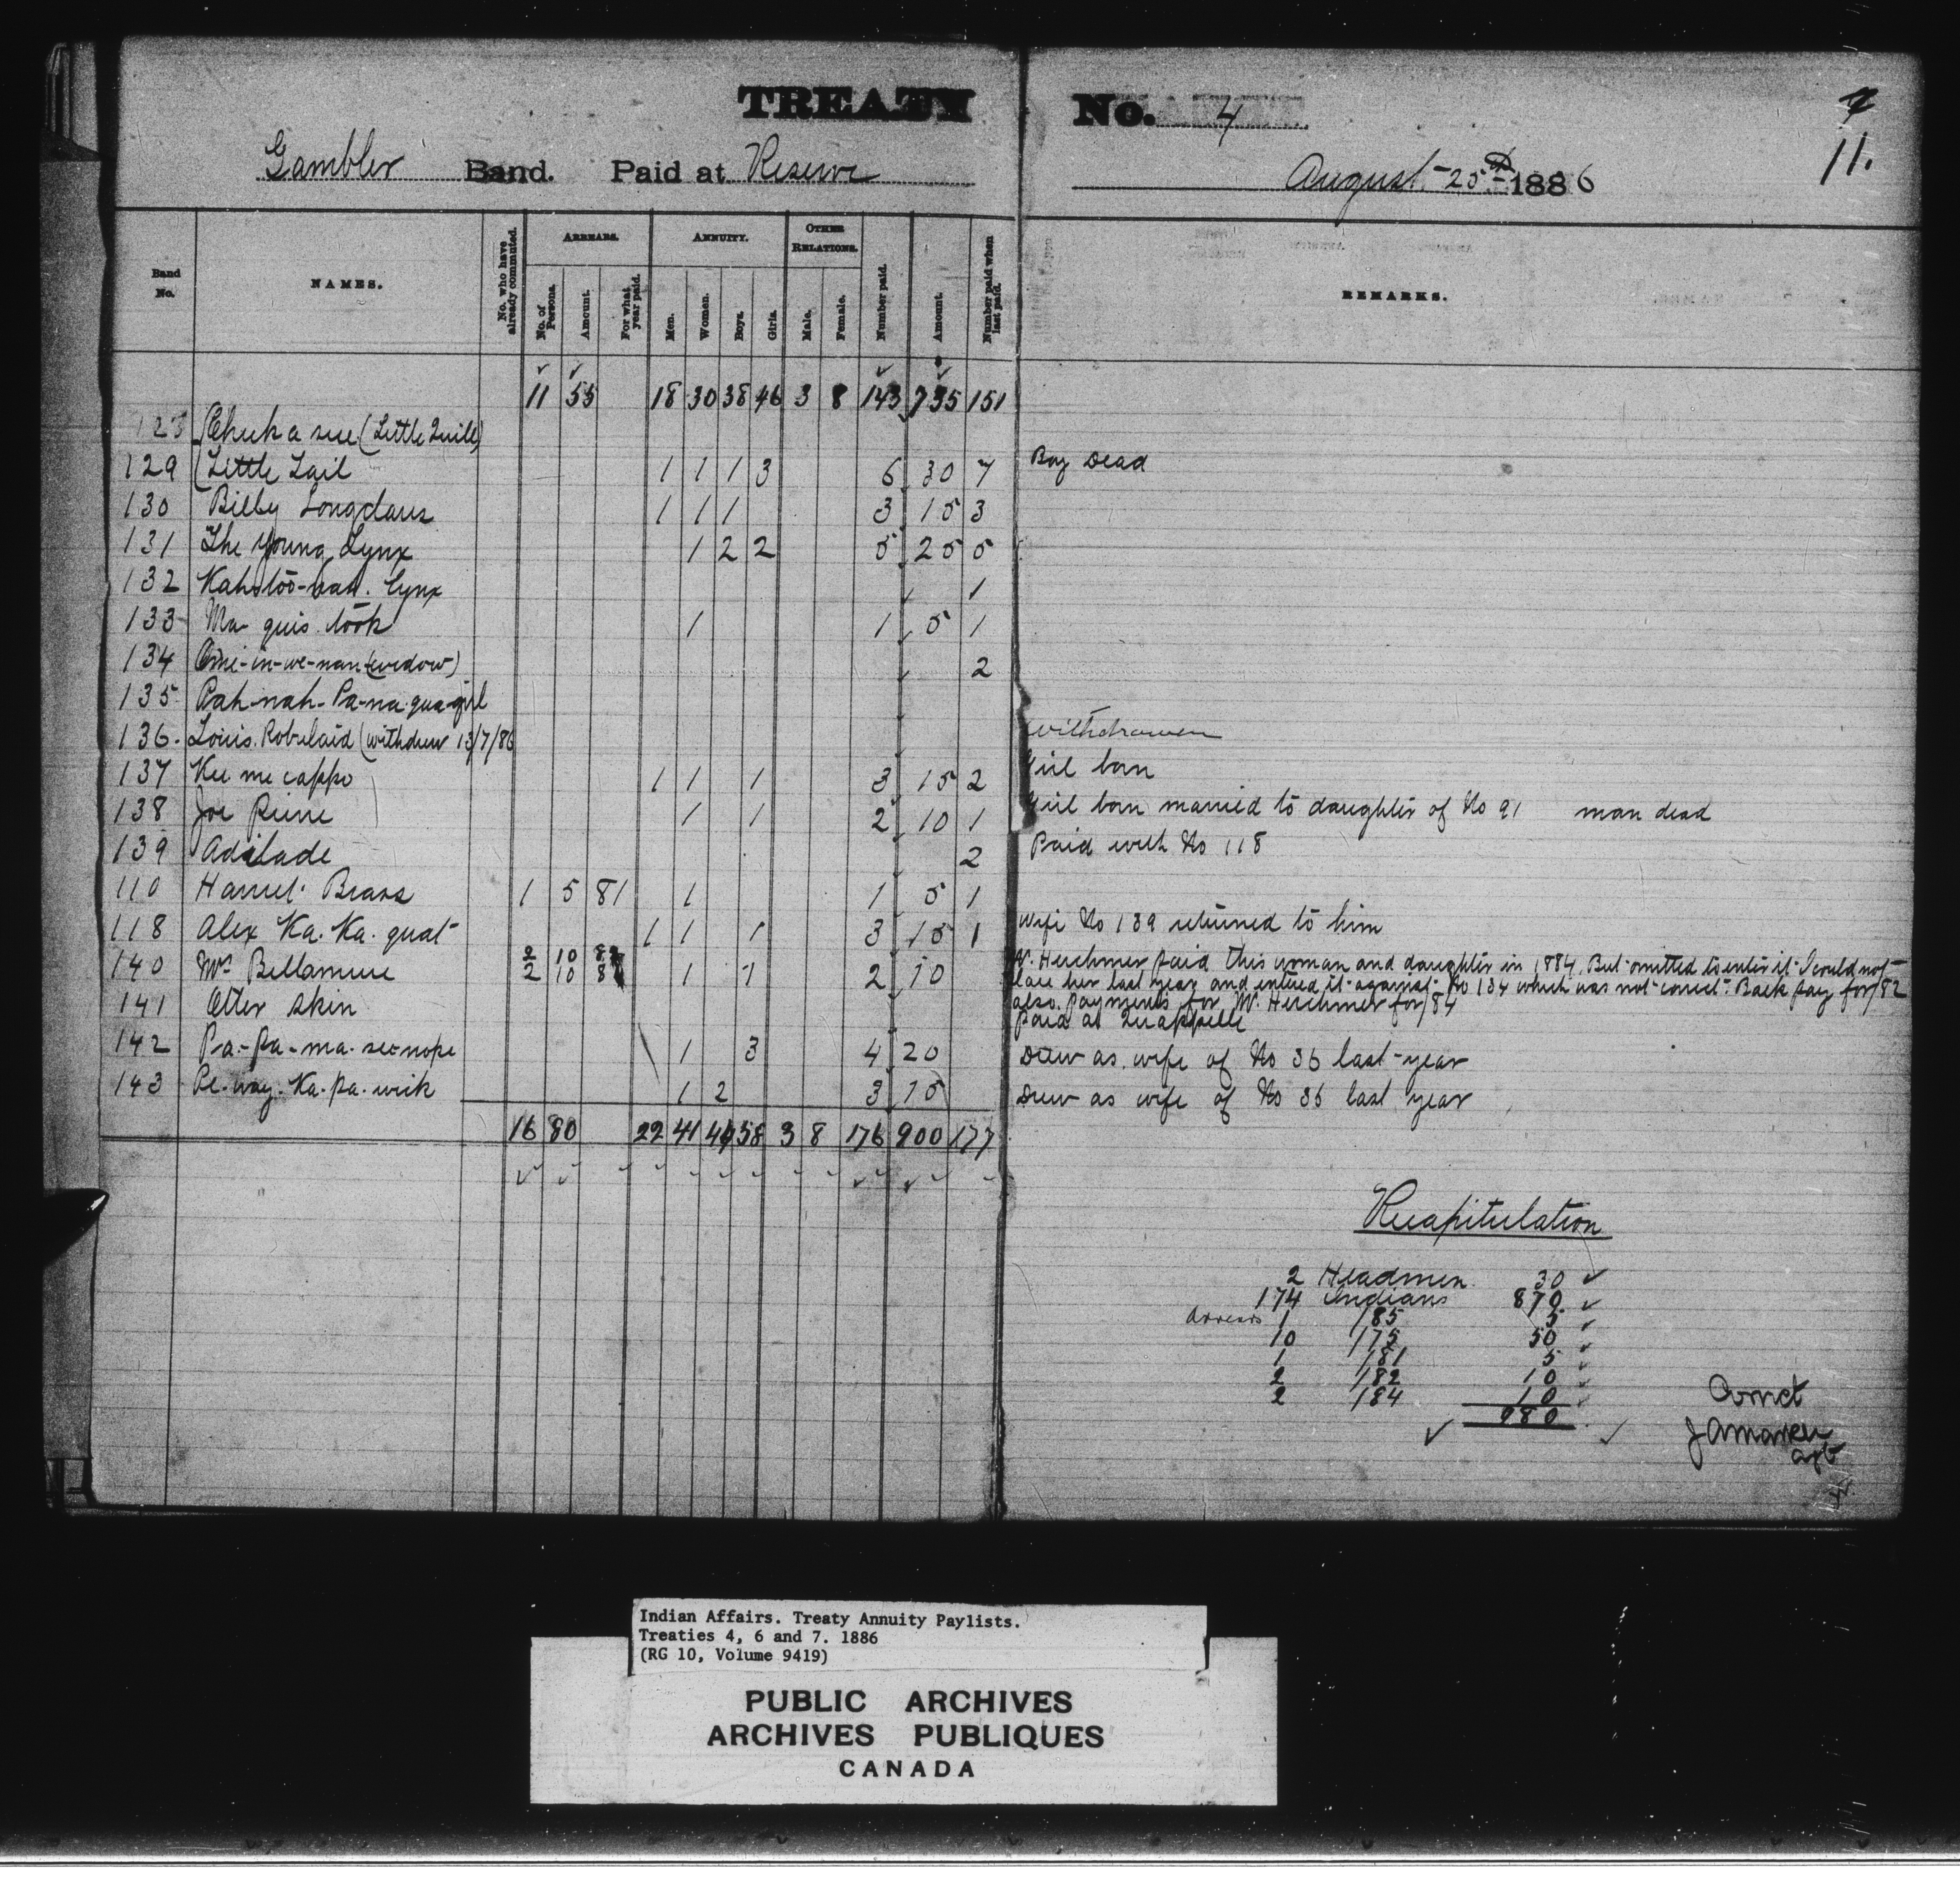 TREATY No. 4
7
11.
Gambler Band. Paid at Reserve August 25th 1886
Band No. NAMES. No. who have already commuted. ARREARS. No. of Persons. Amount. For what year paid. ANNUITY. Men. Women. Boys. Girls. OTHER RELATIONS. Male. Female. Number paid. Amount. Number paid when last paid. REMARKS.
11 55 18 30 38 46 3 8 143 735 151
123 Chuk a sue (Little Quill)
129 (Little Tail 1 1 1 3 6 30 7 Boy Dead
130 Billy Longclaws 1 1 1 3 15 3
131 The Young Lynx 1 2 2 5 25 5
132 Lynx 1
133 Ma quis took 1 1 5 1
134 -in-we-nan (widow) 2
135 Pah-nah-Pa-na-qua-girl
136. Louis Robelaid (withdrew 13/7/86 withdrawen
137 Kee me cappo 1 1 1 3 15 2 Girl born
138 Joe Rune 1 1 2 10 1 Girl born married to daughter of No 91 man dead
139 Adilade 2 Paid with No 118
110 Harriet Brass 1 5 81 1 1 5 1
118 Alex Ka. Ka. quat 1 1 1 3 15 1 Wife No 139 returned to him
2 10 82
140 Mrs Bellamure 2 10 84 1 1 2 10 Mr. Herchmer paid this woman and daughter in 1884. But omitted to enter it I could not
her last year and entered it against No 134 which was not correct. Back pay for /82
also payments for Mr. Herchmer for /84
141 Otter Skin Paid at Quappelle
142 Pa-pa-ma-see-nope 1 3 4 20 Drew as wife of No 36 last year
143 Pe-way-Ka-pa-wik 1 2 3 15 Drew as wife of No 36 last year
16 80 22 41 44 58 3 8 176 900 177
Recapitulation
2 Headmen 30
174 Indians 870
Arrears 1 /85 5
10 /75 50
1 /81 5
2 /82 10
2 /84 10
980
Correct
J A Markle
Agt
Indian Affairs. Treaty Annuity Paylists.
Treaties 4, 6 and 7. 1886
(RG 10, Volume 9419)
PUBLIC ARCHIVES
ARCHIVES PUBLIQUES
CANADA